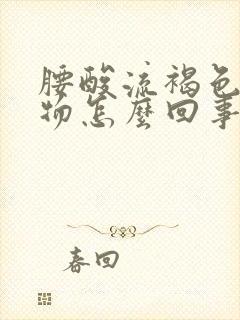 腰酸流褐色
物怎麼回事
春回